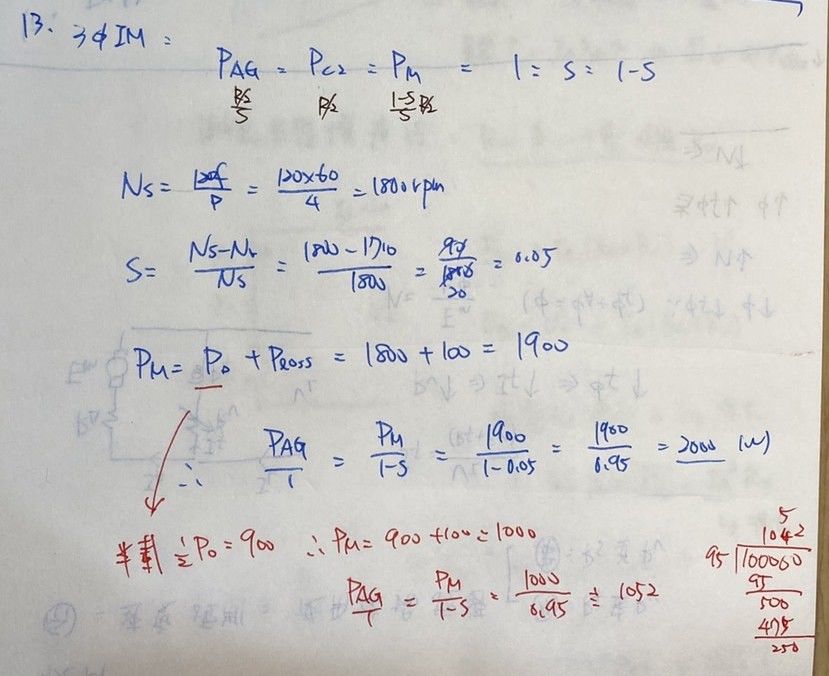 13. 3φIM:
P_AG : P_C2 : P_M = 1 : S : 1-S
P_C2/S P_C2 (1-S)/S P_C2
Ns = 120f/P = 120×60/4 = 1800rpm
S = (Ns-Nr)/Ns = (1800-1710)/1800 = 90/1800 20 = 0.05
P_M = P_o + P_Loss = 1800 + 100 = 1900
∴ P_AG/1 = P_M/(1-S) = 1900/(1-0.05) = 1900/0.95 = 2000 (W)
半載 ½P_o = 900 ∴ P_M = 900 + 100 = 1000
P_AG/1 = P_M/(1-S) = 1000/0.95 ≒ 1052
5
1042
95 100000
95
500
475
250